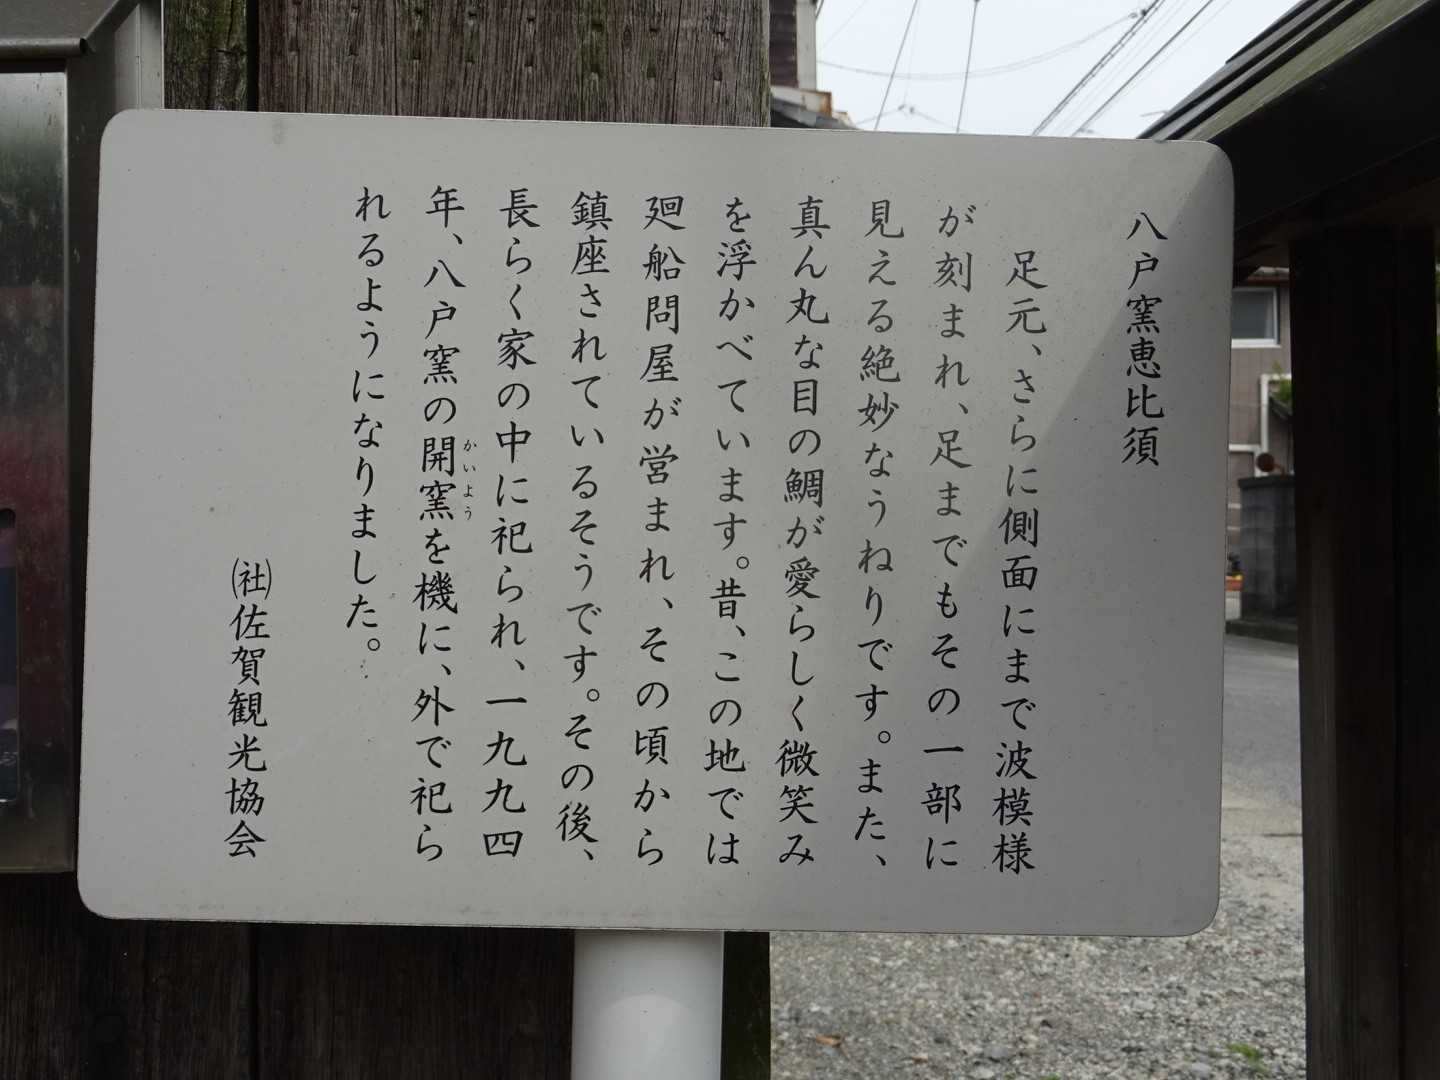 八戸窯恵比須
足元、さらに側面にまで波模様
が刻まれ、足までもその一部に
見える絶妙なうねりです。また、
真ん丸な目の鯛が愛らしく微笑み
を浮かべています。昔、この地では
廻船問屋が営まれ、その頃から
鎮座されているそうです。その後、
長らく家の中に祀られ、一九九四
年、八戸窯の開窯を機に、外で祀ら
かいよう
れるようになりました。
㈳佐賀観光協会